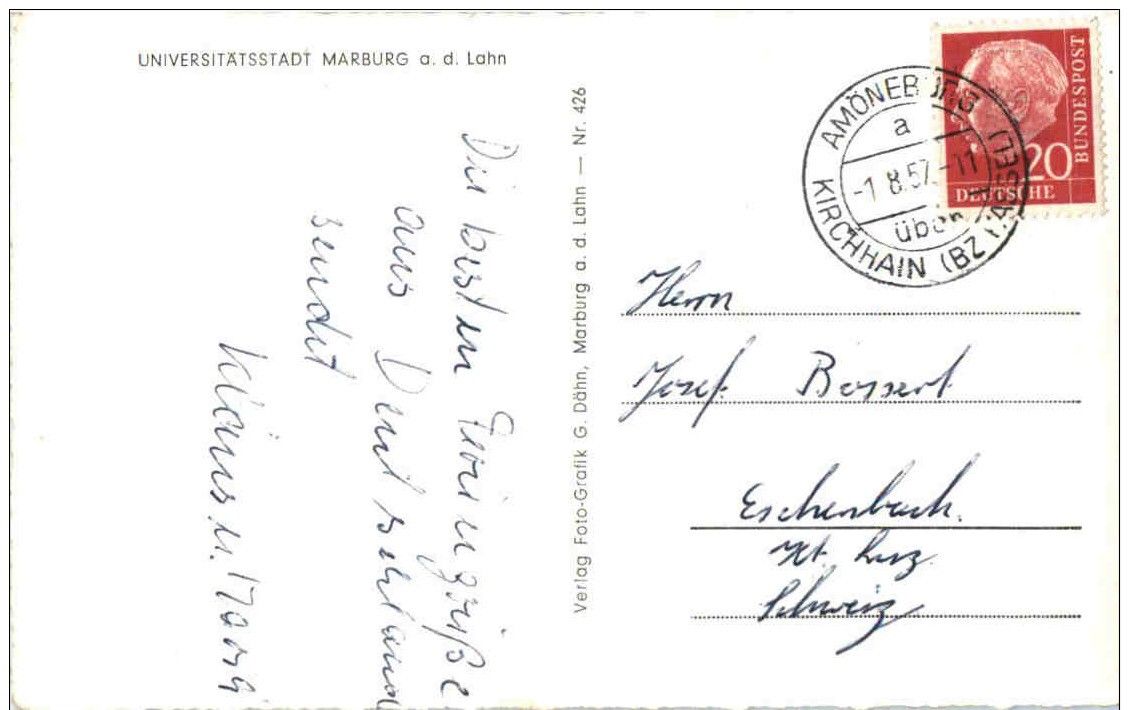 UNIVERSITÄTSSTADT MARBURG a. d. Lahn
Die besten Feriengrüße
aus Deutschland
sendet
Klaus u.
Verlag Foto-Grafik G. Dähn, Marburg a. d. Lahn — Nr. 426
AMÖNEBURG
a
-1.8.57.-11
über
KIRCHHAIN (BZ KASSEL)
20
DEUTSCHE
BUNDESPOST
Herrn
Josef Bossert
Eschenbach.
Kt. Luz.
Schweiz